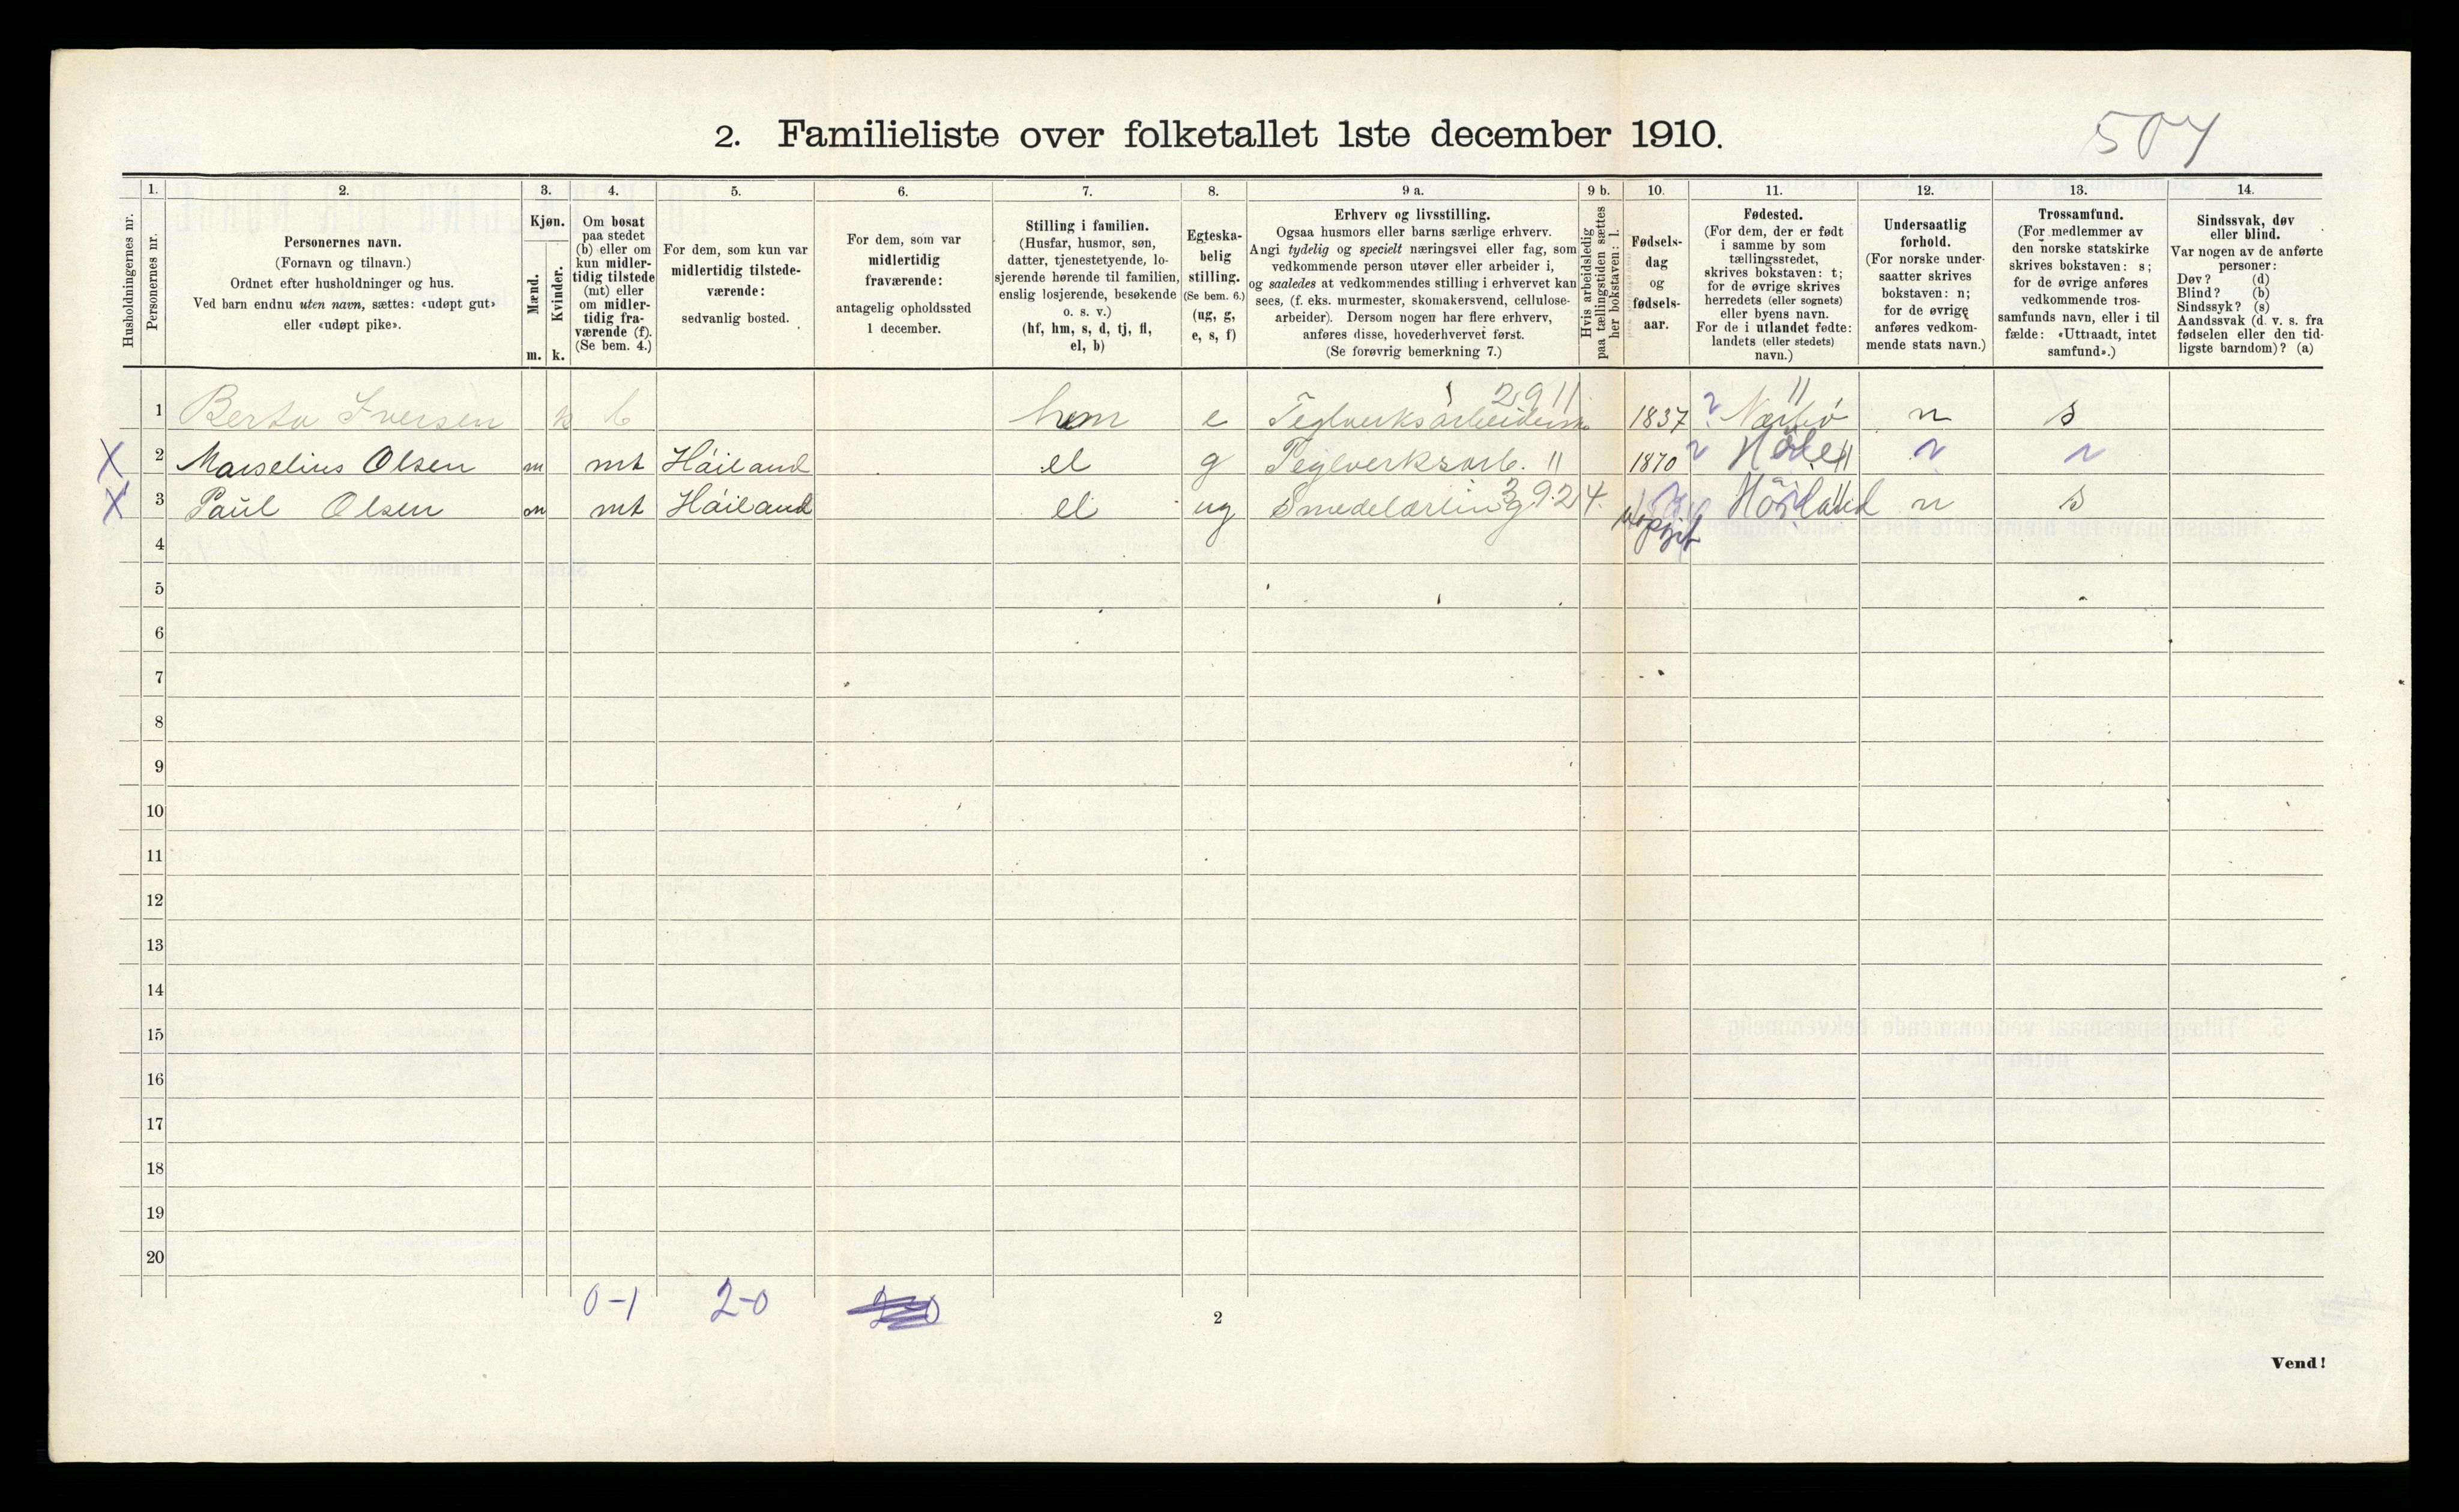 2. Familieliste over folketallet 1ste december 1910.
507
1. 2. 3. 4. 5. 6. 7. 8. 9 a. 9 b. 10. 11. 12. 13. 14.
Husholdningernes nr.
Personernes nr.
Personernes navn.
(Fornavn og tilnavn.)
Ordnet efter husholdninger og hus.
Ved barn endnu uten navn, sættes: «udøpt gut»
eller «udøpt pike».
Kjøn.
Mænd.
Kvinder.
m. k.
Om bosat
paa stedet
(b) eller om
kun midler-
tidig tilstede
(mt) eller
om midler-
tidig fra-
værende (f).
(Se bem. 4.)
For dem, som kun var
midlertidig tilstede-
værende:
sedvanlig bosted.
For dem, som var
midlertidig
fraværende:
antagelig opholdssted
1 december.
Stilling i familien.
(Husfar, husmor, søn,
datter, tjenestetyende, lo-
sjerende hørende til familien,
enslig losjerende, besøkende
o. s. v.)
(hf, hm, s, d, tj, fl,
el, b)
Egteska-
belig
stilling.
(Se bem. 6.)
(ug, g,
e, s, f)
Erhverv og livsstilling.
Ogsaa husmors eller barns særlige erhverv.
Angi tydelig og specielt næringsvei eller fag, som
vedkommende person utøver eller arbeider i,
og saaledes at vedkommendes stilling i erhvervet kan
sees, (f. eks. murmester, skomakersvend, cellulose-
arbeider). Dersom nogen har flere erhverv,
anføres disse, hovederhvervet først.
(Se forøvrig bemerkning 7.)
Hvis arbeidsledig
paa tællingstiden sættes
her bokstaven: l.
Fødsels-
dag
og
fødsels-
aar.
Fødested.
(For dem, der er født
i samme by som
tællingsstedet,
skrives bokstaven: t;
for de øvrige skrives
herredets (eller sognets)
eller byens navn.
For de i utlandet fødte:
landets (eller stedets)
navn.)
Undersaatlig
forhold.
(For norske under-
saatter skrives
bokstaven: n;
for de øvrige
anføres vedkom-
mende stats navn.)
Trossamfund.
(For medlemmer av
den norske statskirke
skrives bokstaven: s;
for de øvrige anføres
vedkommende tros-
samfunds navn, eller i til
fælde: «Uttraadt, intet
samfund».)
Sindssvak, døv
eller blind.
Var nogen av de anførte
personer:
Døv? (d)
Blind? (b)
Sindssyk? (s)
Aandssvak (d. v. s. fra
fødselen eller den tid-
ligste barndom)? (a)
2911 "
1 Berta Iversen k b hm e 1837 Nærbø n s
X 2 Marselius Olsen m mt Håiland el g Teglverksarb. " 1870 Høle "
X 3 Paul Olsen m mt Håiland el ug Smedelærling 3924. n s
uopgit
4
5
6
7
8
9
10
11
12
13
14
15
16
17
18
19
20
0-1 2-0
2
Vend!